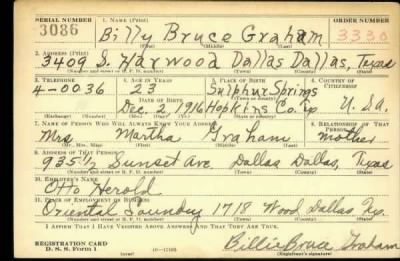 SERIAL NUMBER 1. NAME (Print) ORDER NUMBER
3086 Billy Bruce Graham 3330
(First) (Middle) (Last)
2. ADDRESS (Print)
3409 S. Harwood Dallas Dallas, Texas
(Number and street or R. F. D. number) (Town) (County) (State)
3. TELEPHONE 4. AGE IN YEARS 5. PLACE OF BIRTH 6. COUNTRY OF CITIZENSHIP
4-0036 23 Sulphur Springs
DATE OF BIRTH (Town or county)
Dec. 2, 1916 Hopkins Co. Tx U.S.A.
(Exchange) (Number) (Mo.) (Day) (Yr.) (State or country)
7. NAME OF PERSON WHO WILL ALWAYS KNOW YOUR ADDRESS 8. RELATIONSHIP OF THAT PERSON
Mrs. Martha Graham mother
(Mr., Mrs., Miss) (First) (Middle) (Last)
9. ADDRESS OF THAT PERSON
935 1/2 Sunset Ave. Dallas Dallas, Texas
(Number and street or R. F. D. number) (Town) (County) (State)
10. EMPLOYER'S NAME
Otto Herold
11. PLACE OF EMPLOYMENT OR BUSINESS
Oriental Laundry 1718 Wood Dallas, Tx.
(Number and street or R. F. D. number) (Town) (County) (State)
I AFFIRM THAT I HAVE VERIFIED ABOVE ANSWERS AND THAT THEY ARE TRUE.
REGISTRATION CARD
D. S. S. Form 1 Billie Bruce Graham
(Registrant's signature)